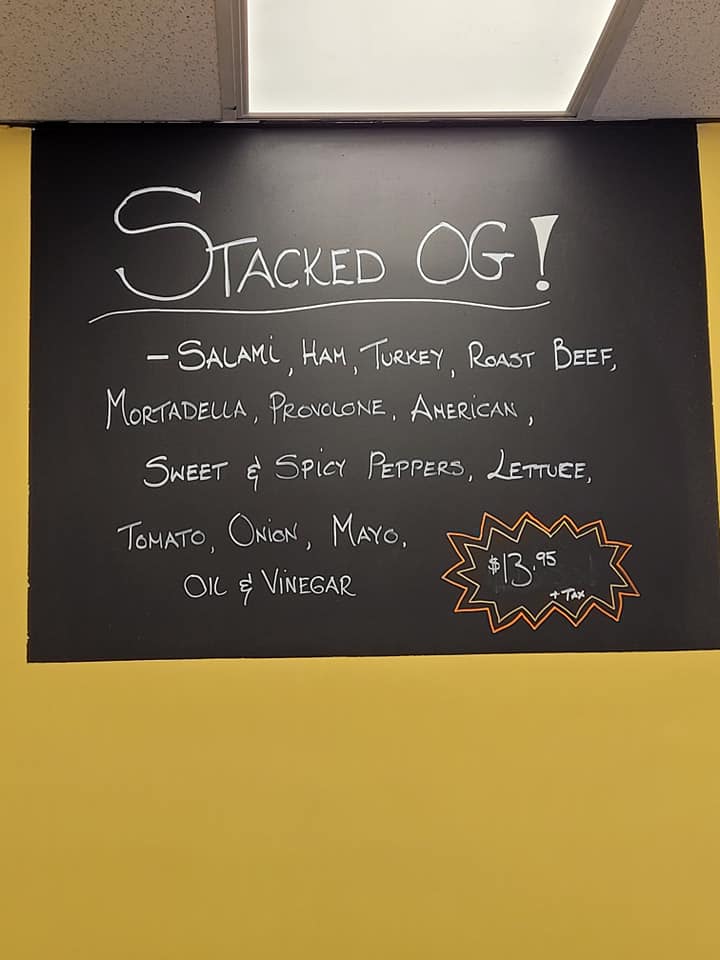 STACKED OG!
- SALAMI, HAM, TURKEY, ROAST BEEF,
MORTADELLA, PROVOLONE, AMERICAN,
SWEET & SPICY PEPPERS, LETTUCE,
TOMATO, ONION, MAYO,
OIL & VINEGAR
$13.95
+ TAX